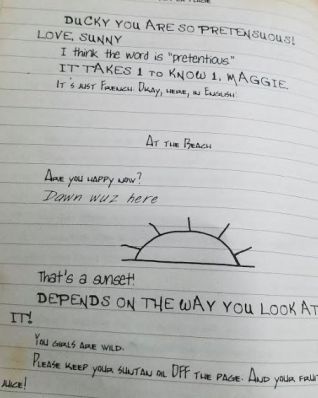 DUCKY YOU ARE SO PRETENSUOUS!
LOVE, SUNNY
I think the word is "pretentious"
IT TAKES 1 TO KNOW 1, MAGGIE.
IT'S JUST FRENCH. OKAY, HERE, IN ENGLISH:
AT THE BEACH
ARE YOU HAPPY NOW?
Dawn wuz here
That's a sunset!
DEPENDS ON THE WAY YOU LOOK AT
IT!
YOU GIRLS ARE WILD.
PLEASE KEEP YOUR SUNTAN OIL OFF THE PAGE. AND YOUR FRUIT
JUICE!